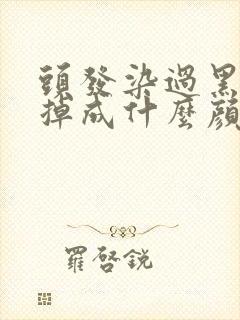 頭發染過黑
掉成什麼顏
羅啓銳